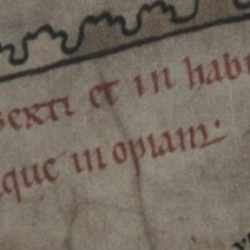 serti et in habi
que inopiam: